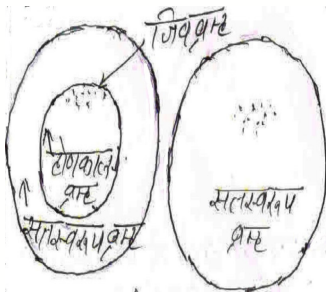 जिवब्रम्ह
होणकाळ
ब्रम्ह
सतस्वरुप ब्रम्ह
सतस्वरुप
ब्रम्ह